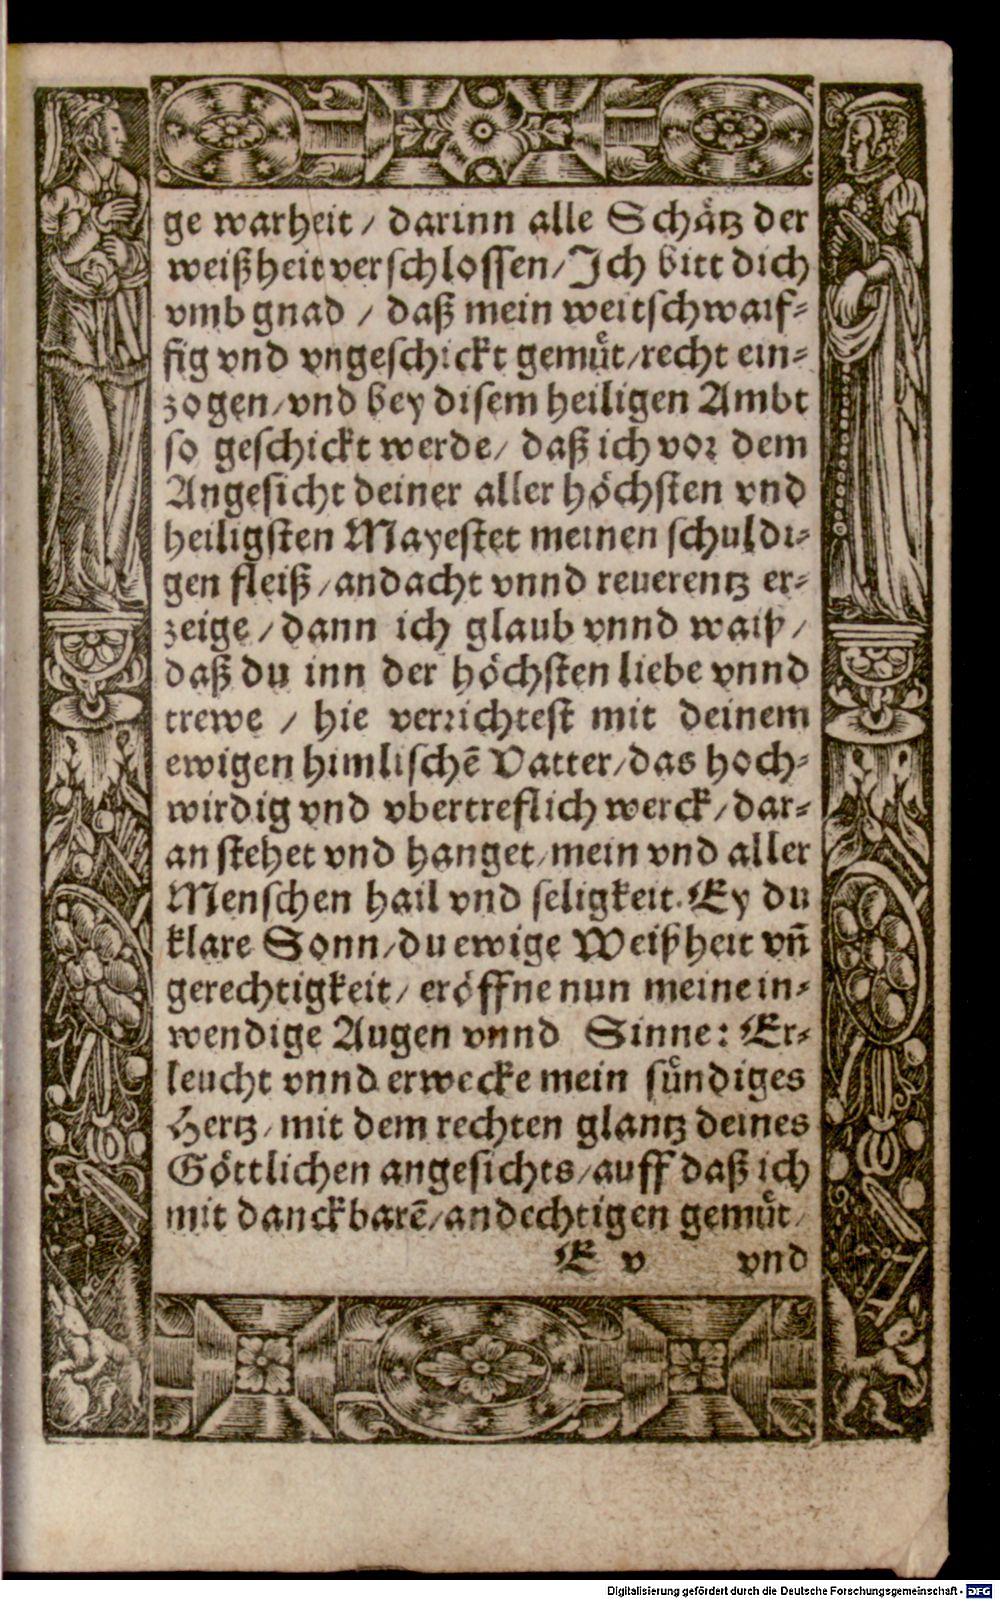 ge warheit / darinn alle Schätz der
weißheit verschlossen / Ich bitt dich
vmb gnad / daß mein weitschwaif-
fig vnd vngeschickt gemüt / recht ein-
zogen / vnd bey disem heiligen Ambt
so geschickt werde / daß ich vor dem
Angesicht deiner aller höchsten vnd
heiligsten Mayestet meinen schuldi-
gen fleiß / andacht vnnd reuerentz er-
zeige / dann ich glaub vnnd waiß /
daß du inn der höchsten liebe vnnd
trewe / hie verrichtest mit deinem
ewigen himlischē Vatter / das hoch-
wirdig vnd vbertreflich werck / dar-
an stehet vnd hanget / mein vnd aller
Menschen hail vnd seligkeit. Ey du
klare Sonn / du ewige Weißheit vn̄
gerechtigkeit / eröffne nun meine in-
wendige Augen vnnd Sinne: Er-
leucht vnnd erwecke mein sündiges
Hertz / mit dem rechten glantz deines
Göttlichen angesichts / auff daß ich
mit danckbarē / andechtigen gemüt /
E v vnd
Digitalisierung gefördert durch die Deutsche Forschungsgemeinschaft - DFG